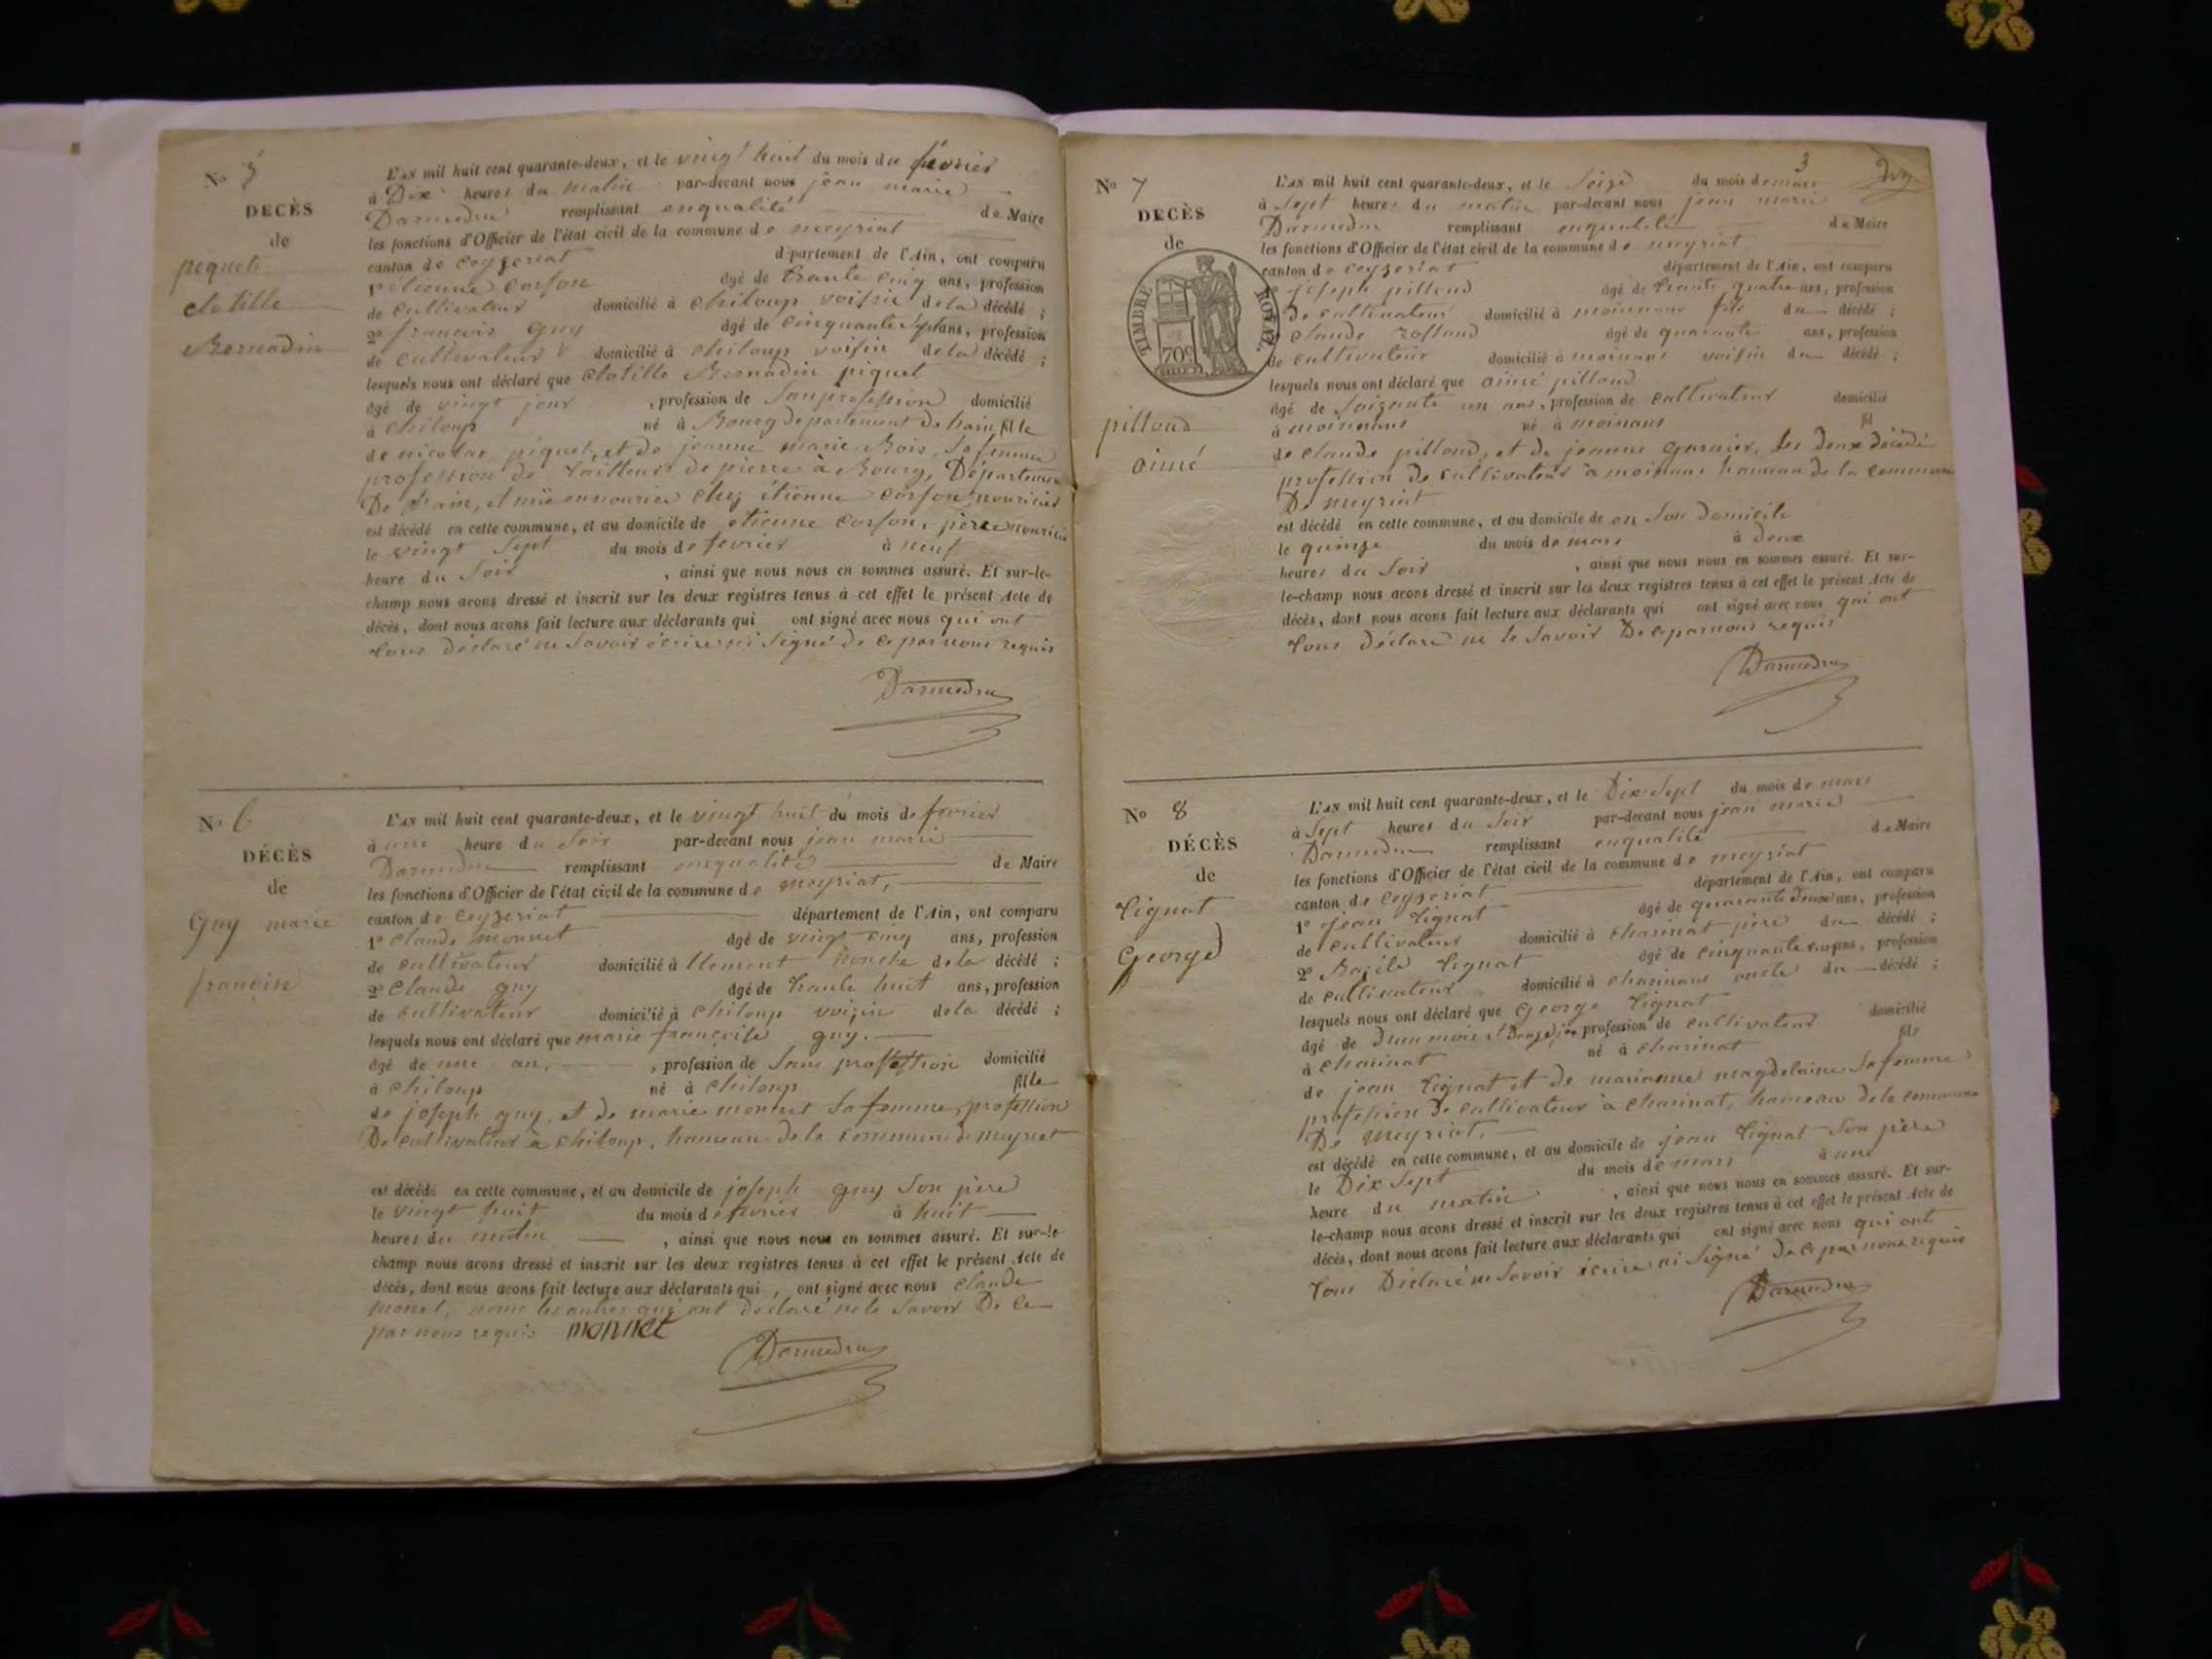 No 5
DECÈS
de
piquet
clotille
Bernadin
L'AN mil huit cent quarante-deux, et le vingt huit du mois de fevrier
à Dix heures du matin par-devant nous jean marie
Darmedru remplissant enqualité de Maire
les fonctions d'Officier de l'état civil de la commune de meyriat
canton de ceyzeriat département de l'Ain, ont comparu
1º étienne corson âgé de trante cinq ans, profession
de cultivateur domicilié à chiloup voisin de la décédé ;
2º francois guy âgé de cinquante sept ans, profession
de cultivateur domicilié à chiloup voisin de la décédé ;
lesquels nous ont déclaré que clotille Bernadin piquet
âgé de vingt jour , profession de Sanprofession domicilié
à chiloup né à Bourg departement de hain fille
de nicolas piquet, et de jeanne marie Bois, Sa femme
profession de tailleur de pierre à Bourg, Département
De hain, et mie ennourice chez étienne corson nouricier
est décédé en cette commune, et au domicile de etienne corson, père nouricie
le vingt Sept du mois de fevrier à neuf
heure du Soir , ainsi que nous nous en sommes assuré. Et sur-le-
champ nous avons dressé et inscrit sur les deux registres tenus à cet effet le présent Acte de
décès, dont nous avons fait lecture aux déclarants qui ont signé avec nous qui ont
tous déclaré ne Savoir écrire ni Signé de ce par nous requis
Darmedru
No 6
DÉCÈS
de
Guy marie
francoise
L'AN mil huit cent quarante-deux, et le vingt huit du mois de fevrier
à une heure du Soir par-devant nous jean marie
Darmedru remplissant enqualité de Maire
les fonctions d'Officier de l'état civil de la commune de meyriat,
canton de ceyzeriat département de l'Ain, ont comparu
1º claude monnet âgé de vingt cinq ans, profession
de cultivateur domicilié à honcle de la décédé ;
2º Claude guy âgé de trante huit ans, profession
de cultivateur domicilié à chiloup voizin de la décédé ;
lesquels nous ont déclaré que marie francoise guy.
âgé de une an, , profession de Sans proffession domicilié
à chiloup né à chiloup fille
de joseph guy, et de marie monnet Sa femme, profession
De cultivateur à chiloup, hameau de la commune de meyriat
est décédé en cette commune, et au domicile de joseph guy Son père
le vingt huit du mois de fevrier à huit
heures du matin , ainsi que nous nous en sommes assuré. Et sur-le-
champ nous avons dressé et inscrit sur les deux registres tenus à cet effet le présent Acte de
décès, dont nous avons fait lecture aux déclarants qui , ont signé avec nous claude
monet, nome les autres qui ont declaré ne le Savoir De ce
par nous requis monnet
Darmedru
3
No 7
DECÈS
de
TIMBRE ROYAL.
70c
pilloud
aimé
L'AN mil huit cent quarante-deux, et le Seize du mois de mars
à Sept heures du matin par-devant nous jean marie
Darmedru remplissant enqualité de Maire
les fonctions d'Officier de l'état civil de la commune de meyriat
canton de ceyzeriat département de l'Ain, ont comparu
1º joseph pilloud âgé de trante quatre ans, profession
De cultivateur domicilié à moinans fils du décédé ;
claude rolland âgé de quarante ans, profession
de cultivateur domicilié à moinans voisin du décédé ;
lesquels nous ont déclaré que aimé pilloud
âgé de Soizante un ans, profession de cultivateur domicilié
à moinans né à moinans fil
de claude pilloud, et de jeanne garnier, les deux décédé
profession de cultivateur à moinans hameau de la commune
De meyriat
est décédé en cette commune, et au domicile de en Son domicile
le quinze du mois de mars à deux
heures du Soir , ainsi que nous nous en sommes assuré. Et sur-
le-champ nous avons dressé et inscrit sur les deux registres tenus à cet effet le présent Acte de
décès, dont nous avons fait lecture aux déclarants qui ont signé avec nous qui ont
tous déclaré ne le Savoir De ce par nous requis
Darmedru
No 8
DÉCÈS
de
Tignat
George
L'AN mil huit cent quarante-deux, et le Dix Sept du mois de mars
à Sept heures du Soir par-devant nous jean marie
Darmedru remplissant enqualité de Maire
les fonctions d'Officier de l'état civil de la commune de meyriat
canton de ceyzeriat département de l'Ain, ont comparu
1º jean Tignat âgé de quarante deux ans, profession
de cultivateur domicilié à charinat père du décédé ;
2º Bazile Tignat âgé de cinquante ans, profession
de cultivateur domicilié à oncle du décédé ;
lesquels nous ont déclaré que George Tignat
âgé de D'un mois et profession de cultivateur domicilié
à charinat né à charinat fils
de jean Tignat et de marianne magdelaine Sa femme
profession de cultivateur à charinat, hameau de la commune
De meyriat.
est décédé en cette commune, et au domicile de jean Tignat Son père
le Dix Sept du mois de mars à une
heure du matin , ainsi que nous nous en sommes assuré. Et sur-
le-champ nous avons dressé et inscrit sur les deux registres tenus à cet effet le présent Acte de
décès, dont nous avons fait lecture aux déclarants qui ont signé avec nous qui ont
tous Déclaré ne Savoir écrire ni Signé de ce par nous requis
Darmedru